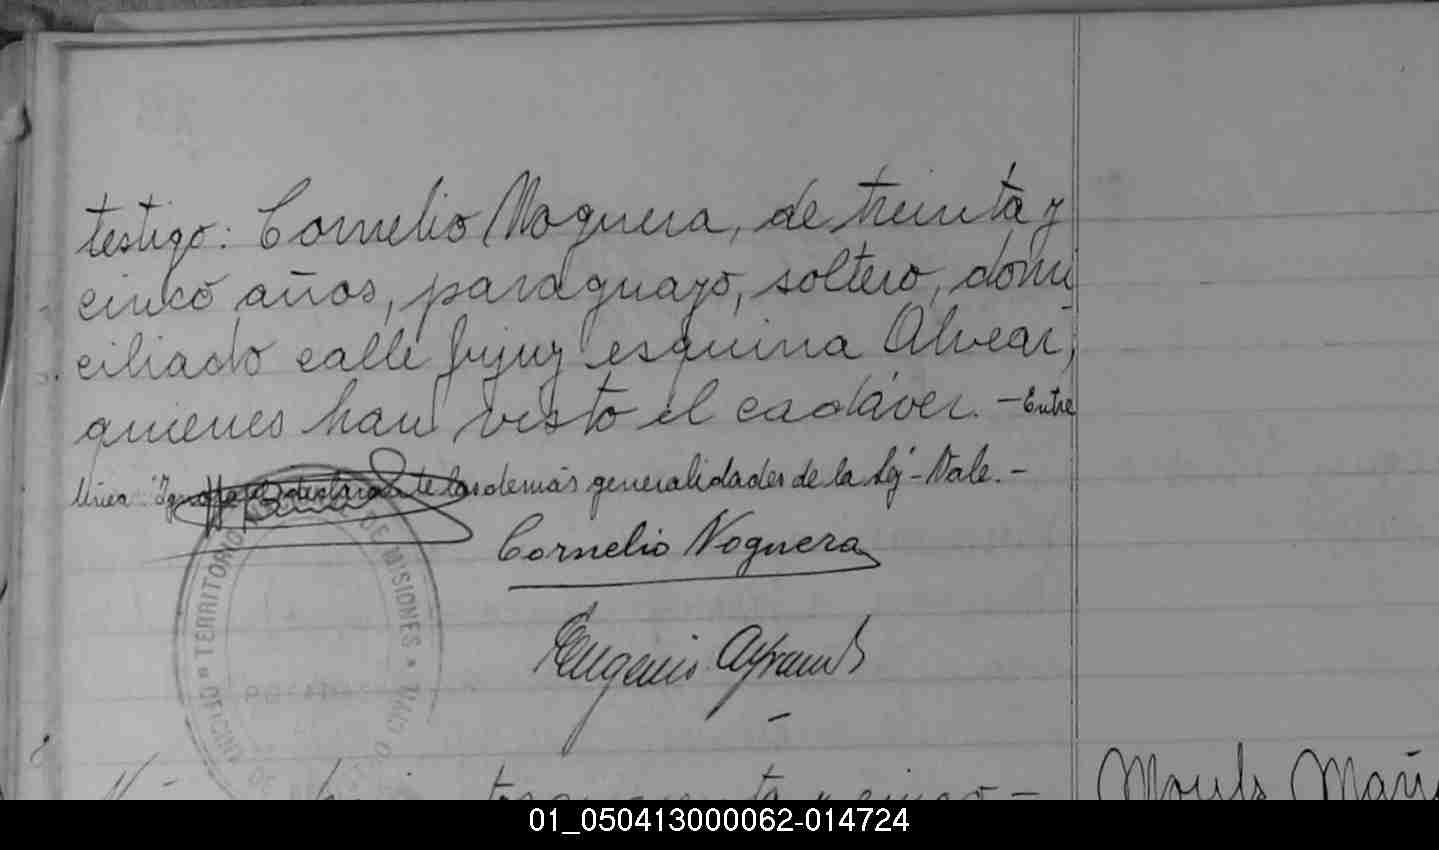 testigo: Cornelio Noguera, de treinta y
cinco años, paraguayo, soltero, domi
ciliado calle Jujuy esquina Alvear,
quienes han visto el cadáver. - Entre
línea: "Ignora el declarante las demás generalidades de la ley" - Vale. -
Cornelio Noguera
Eugenio
TERRITORIO DE MISIONES
OFICINA DE CIVIL
cinco -
01_050413000062-014724